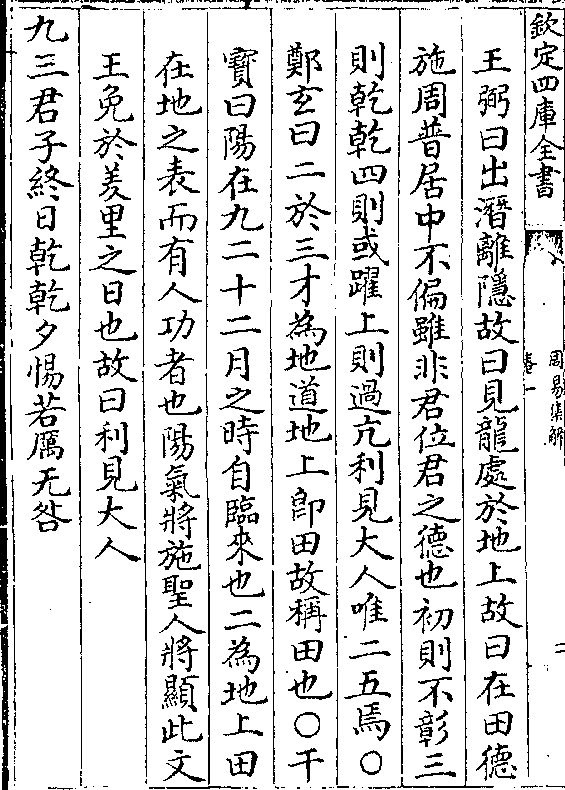 欽定四庫全書
周易集解
卷一
二
王弼曰出潛離隱故曰見龍處於地上故曰在田德
施周普居中不偏雖非君位君之德也初則不彰三
則乾乾四則或躍上則過亢利見大人唯二五焉○
鄭玄曰二於三才為地道地上即田故稱田也○干
寶曰陽在九二十二月之時自臨來也二為地上田
在地之表而有人功者也陽氣將施聖人將顯此文
王免於羑里之日也故曰利見大人
九三君子終日乾乾夕惕若厲无咎